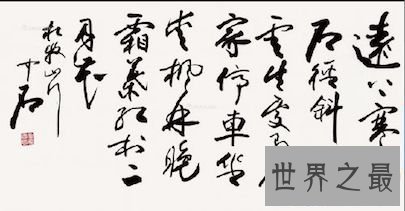 遠上寒
石徑斜
雲生處有人
家停車坐
愛楓林晚
霜葉紅於二
月花
杜牧山行
中石
世界之最